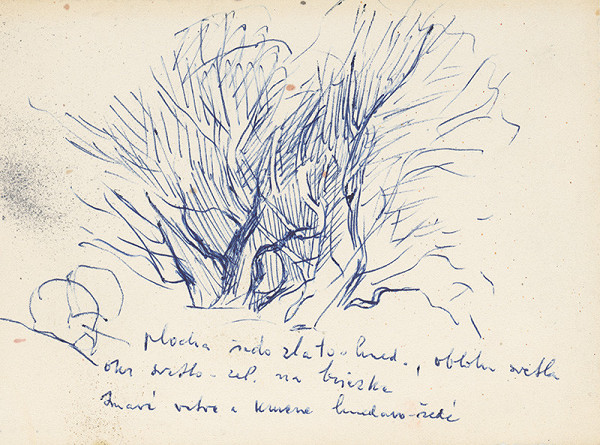 plocha šedo zlato-hned., obloha svetlá
okr svetlo-zel. na
tmavé vetve a kmene hnedavo-šedé